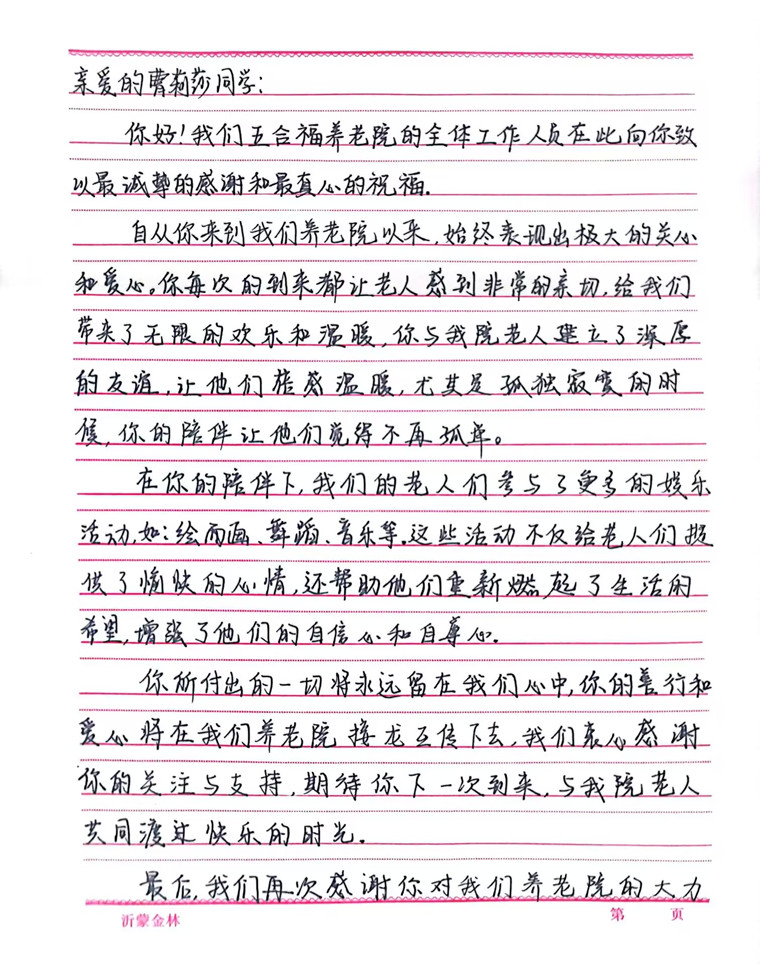 亲爱的曹莉莎同学：
你好！我们五合福养老院的全体工作人员在此向你致
以最诚挚的感谢和最真心的祝福.
自从你来到我们养老院以来,始终表现出极大的关心
和爱心。你每次的到来都让老人感到非常的亲切,给我们
带来了无限的欢乐和温暖,你与我院老人建立了深厚
的友谊,让他们倍感温暖,尤其是孤独寂寞的时
候,你的陪伴让他们觉得不再孤单。
在你的陪伴下,我们的老人们参与了更多的娱乐
活动,如：绘画、舞蹈、音乐等.这些活动不仅给老人们提
供了愉快的心情,还帮助他们重新燃起了生活的
希望,增强了他们的自信心和自尊心.
你所付出的一切将永远留在我们心中,你的善行和
爱心将在我们养老院接龙互传下去,我们衷心感谢
你的关注与支持,期待你下一次到来,与我院老人
共同渡过快乐的时光.
最后,我们再次感谢你对我们养老院的大力
沂蒙金林
第 页